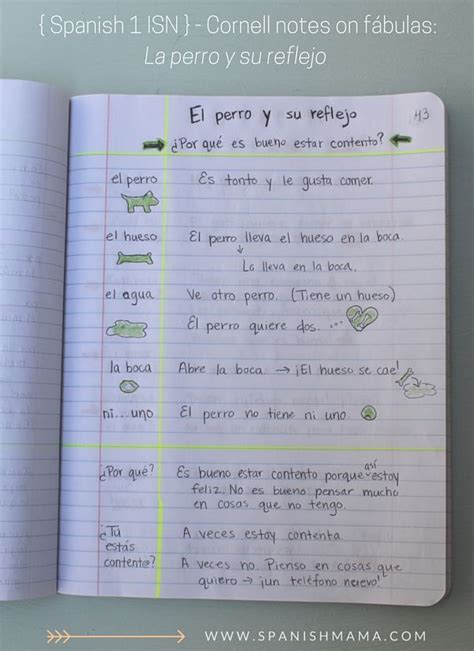 { Spanish 1 ISN } - Cornell notes on fábulas:
La perro y su reflejo
El perro y su reflejo
43
¿Por qué es bueno estar contento?
el perro Es tonto y le gusta comer.
el hueso El perro lleva el hueso en la boca.
Lo lleva en la boca.
el agua Ve otro perro. (Tiene un hueso)
El perro quiere dos. ...
la boca Abre la boca → ¡El hueso se cae!
ni...uno El perro no tiene ni uno.
¿Por qué? Es bueno estar contento porque así estoy
feliz. No es bueno pensar mucho
en cosas que no tengo.
¿Tú A veces estoy contenta.
estás
contente? A veces no. Pienso en cosas que
quiero → ¡un teléfono nuevo!
WWW.SPANISHMAMA.COM